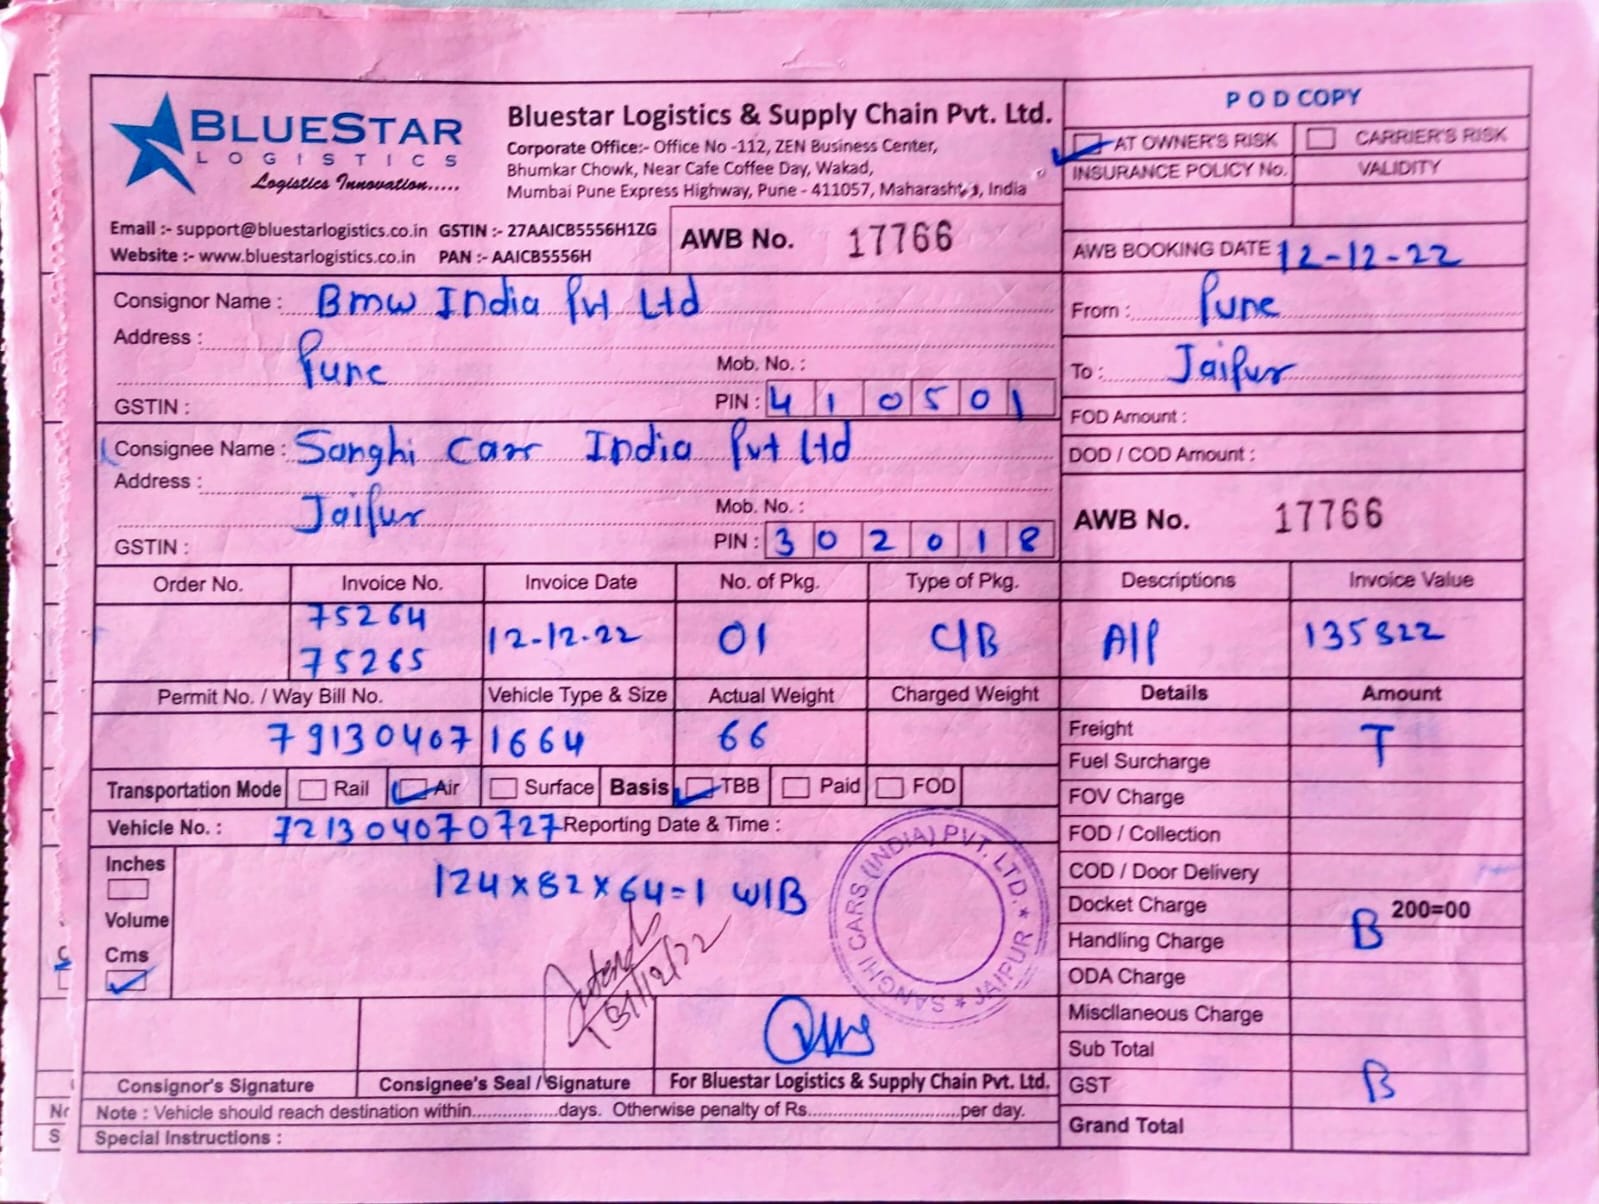 BLUESTAR
LOGISTICS
Logistics Innovation.....
Bluestar Logistics & Supply Chain Pvt. Ltd.
Corporate Office:- Office No -112, ZEN Business Center,
Bhumkar Chowk, Near Cafe Coffee Day, Wakad,
Mumbai Pune Express Highway, Pune - 411057, Maharashtra, India
Email :- support@bluestarlogistics.co.in GSTIN :- 27AAICB5556H1ZG
Website :- www.bluestarlogistics.co.in PAN :- AAICB5556H
AWB No. 17766
POD COPY
AT OWNER'S RISK CARRIER'S RISK
INSURANCE POLICY No. VALIDITY
AWB BOOKING DATE 12-12-22
From : Pune
To : Jaipur
FOD Amount :
DOD / COD Amount :
AWB No. 17766
Consignor Name : Bmw India Pvt Ltd
Address :
Pune Mob. No. :
GSTIN : PIN : 410501
Consignee Name : Sanghi Carr India Pvt Ltd
Address :
Jaipur Mob. No. :
GSTIN : PIN : 302018
Order No. Invoice No. Invoice Date No. of Pkg. Type of Pkg. Descriptions Invoice Value
75264
75265 12-12-22 01 C/B A/P 135322
Permit No. / Way Bill No. Vehicle Type & Size Actual Weight Charged Weight Details Amount
79130407 1664 66
Transportation Mode Rail Air Surface Basis TBB Paid FOD
Vehicle No. : 721304070727 Reporting Date & Time :
Inches
Volume
Cms
124x82x64=1 W/B
31/12/22
SANGHI CARS (INDIA) PVT. LTD. * JAIPUR *
Freight T
Fuel Surcharge
FOV Charge
FOD / Collection
COD / Door Delivery
Docket Charge 200=00
Handling Charge B
ODA Charge
Miscllaneous Charge
Sub Total
GST B
Grand Total
Consignor's Signature Consignee's Seal / Signature For Bluestar Logistics & Supply Chain Pvt. Ltd.
Note : Vehicle should reach destination within.................days. Otherwise penalty of Rs..............................per day.
Special Instructions :